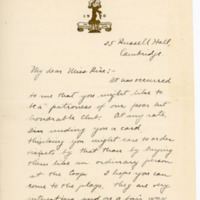 25 Russell Hall,
Cambridge.
My dear Miss Rice:-
It has occurred
to me that you might like to
be a patroness of our poor but
honorable club. At any rate,
I'm sending you a card
thinking you might care to order
tickets by that than by buying
them like an ordinary person
at the Coop. I hope you can
come to the plays, they are very
interesting and on a fair way